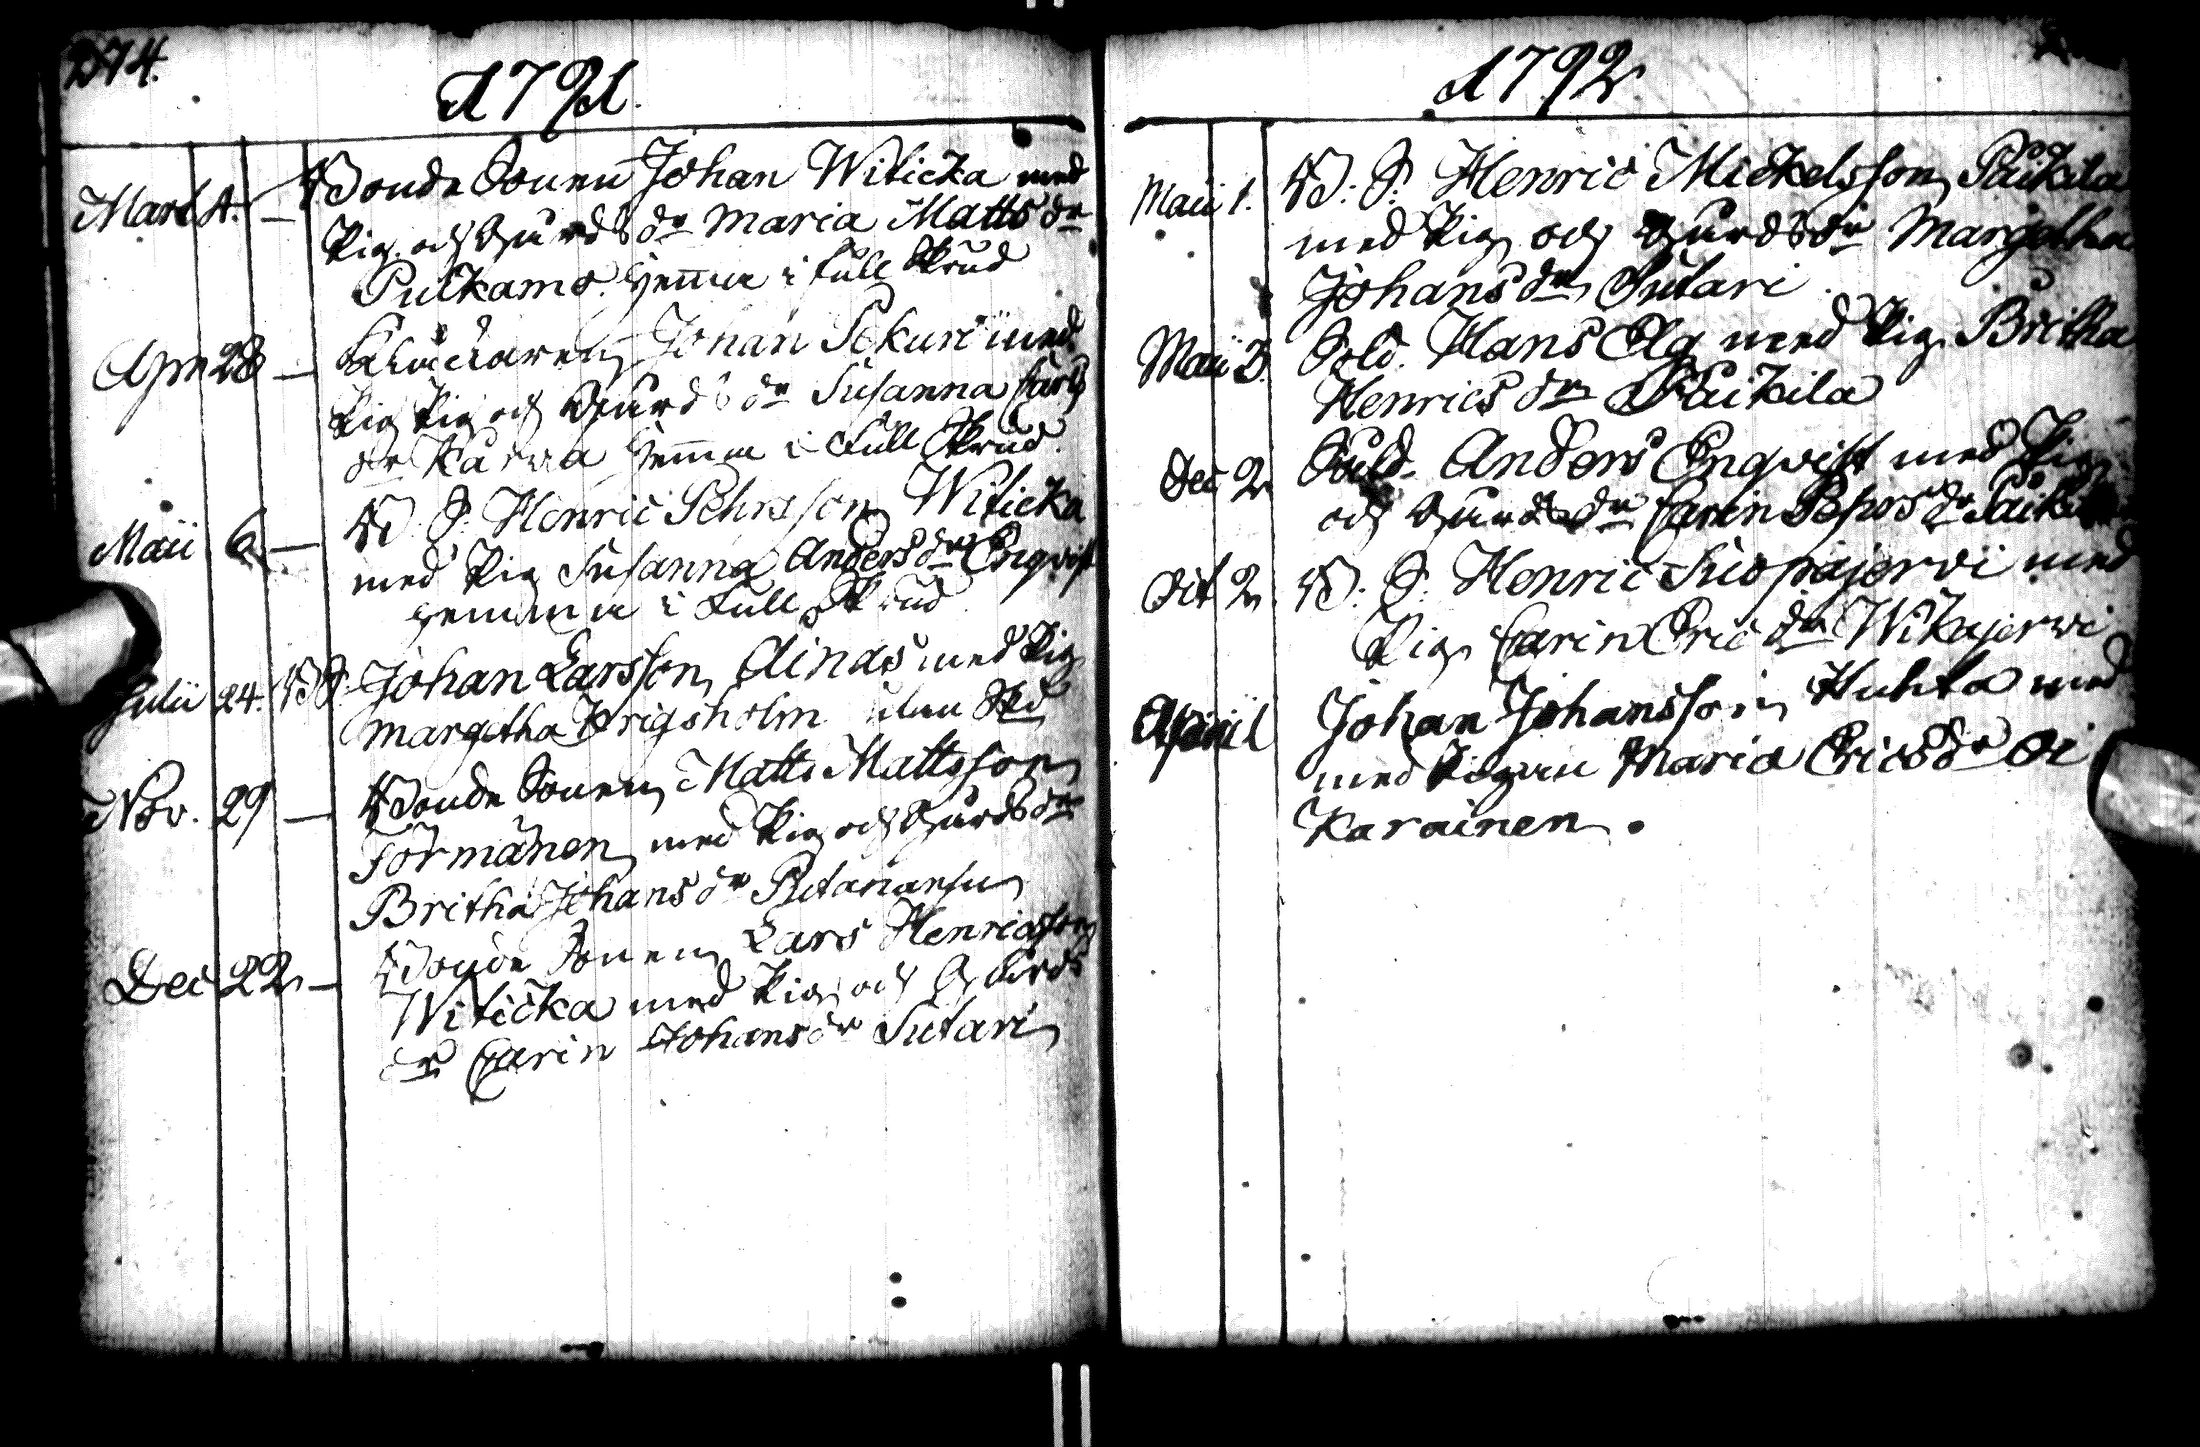 274.
1791.
Mart 4. — Bonde Sonen Johan Witicka med
Pig. och Giurds dr Maria Matts dr
Pulkamo. hemma i full Skrud
Apr 28 — Johan Sokuri med
Pig Pig och Giurds dr Susanna Carls
dr Karwa hemma i full Skrud.
Maii 6 — B. S. Henric Pehrsson Witicka
med Pig Susanna Anders dr Enqvist
hemma i full Skrud
Julii 24. B S. Johan Larsson Ainas med Pig
Margetha Krigsholm utan Skd
Nov. 29 — Bonde Sonen Matts Mattsson
Förmänen med Pig och Giurds dr
Britha Johans dr
Dec 22 — Bonde Sonen Lars Henricsson
Witicka med Pig och Giurds
dr Carin Johans dr Sutari
1792
Maii 1. B. S. Henric Mickelsson Päikila
med Pig och Giurds dr Margetha
Johans dr Sutari
Maii 3. Sold. Hans Elg med Pig Britha
Henrics dr Päikila
Dec 2 Sold. Anders Enqvist med Pig
och Giurds dr Carin dr
Dit 2 B. S. Henric Suopajerwi med
Pig Carin Eric dr Wikajerwi
April Johan Johansson Huhta med
med Pigan Maria Erics dr Oi
Karainen.